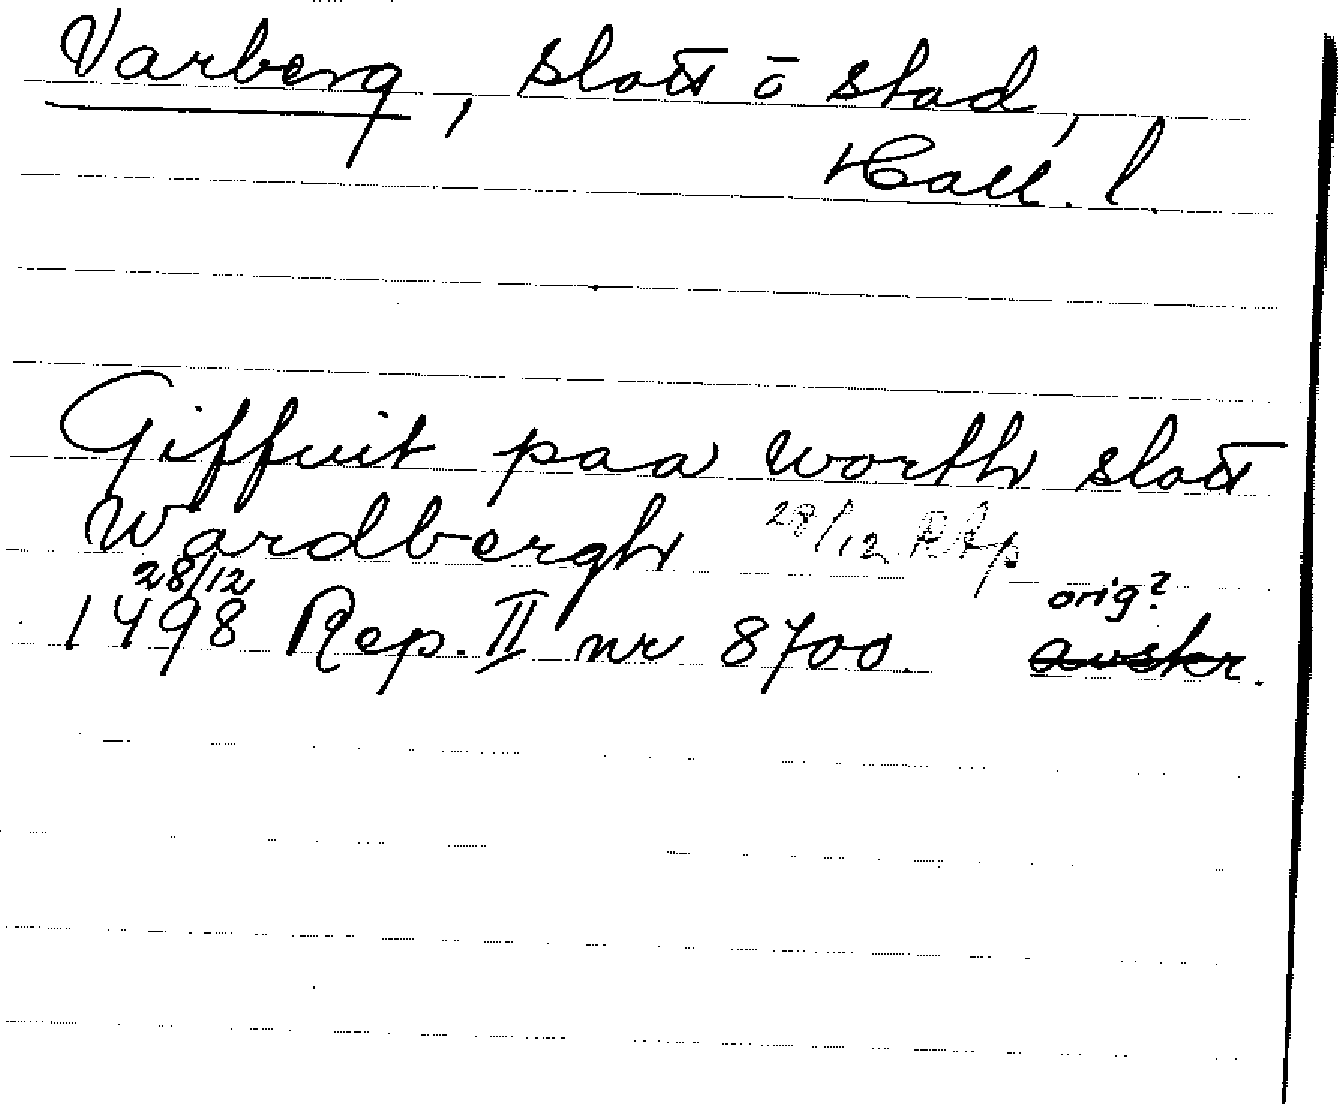 Varberg, slott ō stad,
Hall. l.
Giffuit paa worth slott
Wardbergh 28/12 Rep
28/12 orig?
1498 Rep. II nr 8700. avskr.